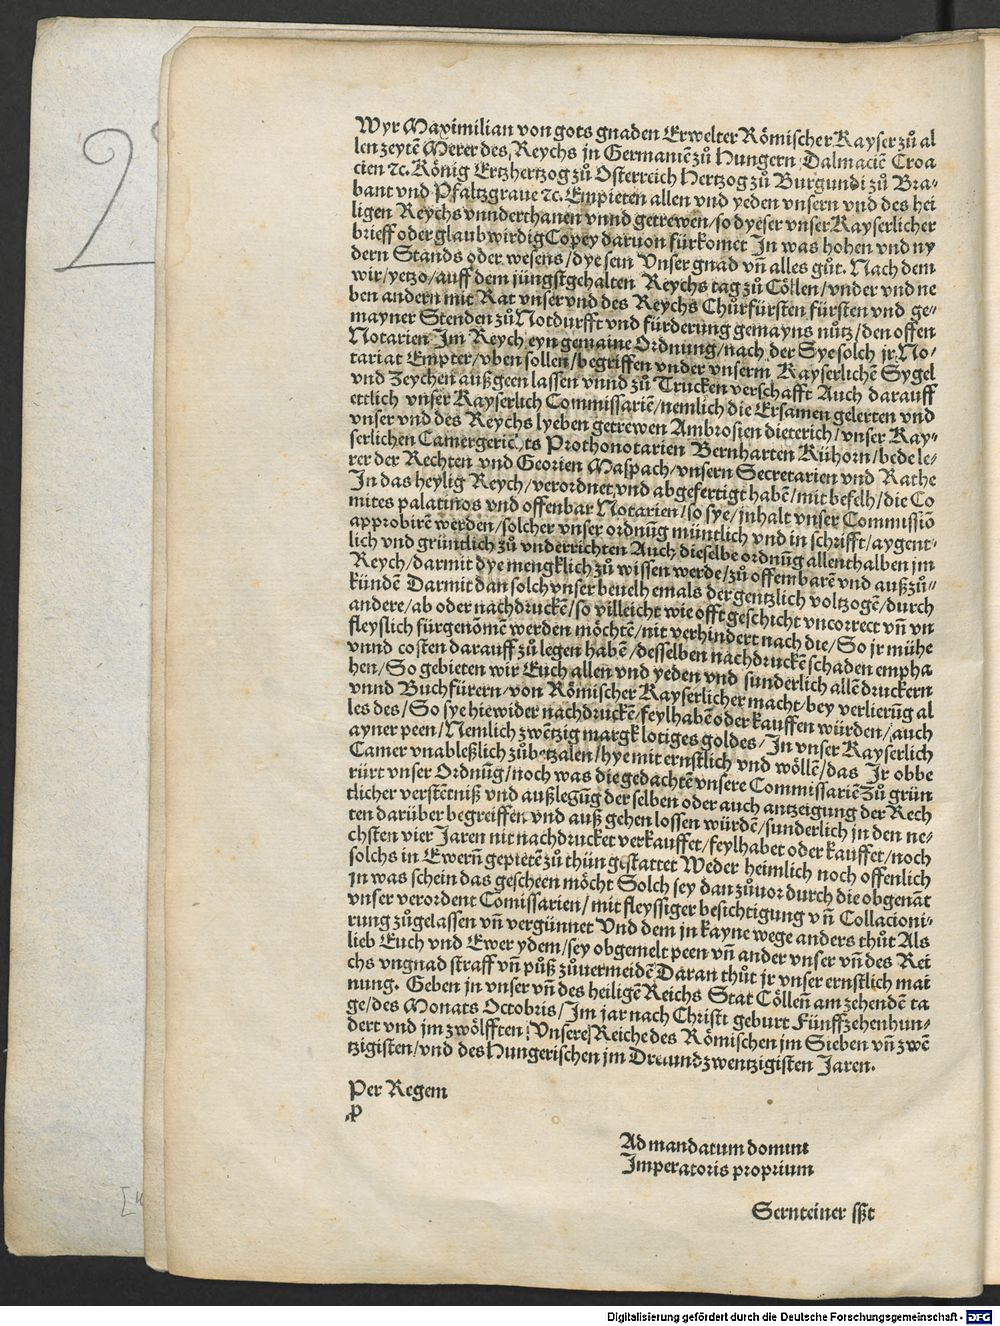 Wyr Maximilian von gots gnaden Erwelter Römischer Kayser zů al
len zeytē Merer des Reychs jn Germaniē zů Hungern Dalmaciē Croa
cien ⁊c. König Ertzhertzog zů Osterreich Hertzog zů Burgundi zů Bra-
bant vnd Pfaltzgraue ⁊c. Empieten allen vnd yeden vnsern vnd des hei
ligen Reychs vnnderthanen vnnd getrewen/so dyeser vnser Kayserlicher
brieff oder glaubwirdig Copey daruon fürkomet In was hohen vnd ny
dern Stands oder wesens/dye sein Vnser gnad vn̄ alles gůt. Nach dem
wir/yetzo/auff dem jüngstgehalten Reychs tag zů Cöllen/vnder vnd ne
ben andern mit Rat vnser vnd des Reychs Churfürsten fürsten vnd ge-
mayner Stenden zů Notdurfft vnd fürderung gemayns nůtz/den offen
Notarien Im Reych eyn gemaine Ordnung/nach der Sye solch jr No-
tariat Empter/vben sollen/begriffen vnder vnserm Kayserlichē Sygel
vnd Zeychen außgeen lassen vnnd zů Trucken verschafft Auch darauff
ettlich vnser Kayserlich Commissariē/nemlich die Ersamen gelerten vnd
vnser vnd des Reychs lyeben getrewen Ambrosien dieterich/vnser Kay-
serlichen Camergerichts Prothonotarien Bernharten Kühorn/bede le-
rer der Rechten vnd Georien Maspach/vnsern Secretarien vnd Rathe
In das heylig Reych/verordnet vnd abgefertigt habē/mit befelh/die Co
mites palatinos vnd offenbar Notarien/so sye/jnhalt vnser Commissiō
approbirē werden/solcher vnser ordnūg müntlich vnd in schrifft/aygent-
lich vnd gründtlich zů vnderrichten Auch dieselbe ordnūg allenthalben jm
Reych/darmit dye mengklich zů wissen werde/zů offembarē vnd außzů-
kündē Darmit dan solch vnser beuelh emals der gentzlich voltzogē/durch
andere/ab oder nachdruckē/so villeicht wie offt geschicht vncorrect vn̄ vn
fleyslich fürgenōmē werden möchtē/nit verhindert nach die/So jr mühe
vnnd costen darauff zů legen habē/desselben nachdruckē schaden empha
hen/So gebieten wir Euch allen vnd yeden vnd sunderlich allē druckern
vnnd Buchfürern/von Römischer Kayserlicher macht/bey verlierūg al
les des/So sye hiewider nachdruckē/feylhabē oder kauffen würden/auch
ayner peen/Nemlich zwēntzig margk lotiges goldes/In vnser Kayserlich
Camer vnableßlich zůbetzalen/hye mit ernstlich vnd wöllē/das Ir obbe
rürt vnser Ordnūg/noch was die gedachtē vnsere Commissariē Zů grün
tlicher verstētniß vnd außlegūg der selben oder auch antzeigung der Rech
ten darüber begreiffen vnd auß gehen lossen würdē/sunderlich jn den ne-
chsten vier Jaren nit nachdrucket verkauffet/feylhabet oder kauffet/noch
solchs in Ewern̄ gepietē zů thün gestattet Weder heimlich noch offenlich
jn was schein das gescheen möcht Solch sey dan zůuor durch die obgenāt
vnser verordent Comissarien/mit fleyssiger besichtigung vn̄ Collacioni-
rung zůgelassen vn̄ vergünnet Vnd dem jn kayne wege anders thůt Als
lieb Euch vnd Ewer ydem/sey obgemelt peen vn̄ ander vnser vn̄ des Rei
chs vngnad straff vn̄ půß zůuermeidē Daran thůt jr vnser ernstlich mai
nung. Geben jn vnser vn̄ des heiligē Reichs Stat Cöllen̄ am zehendē ta
ge/des Monats Octobris/Im jar nach Christi geburt Fünffzehenhun-
dert vnd jm zwölfften Vnsere Reiche des Römischen jm Sieben vn̄ zwē
tzigisten/vnd des Hungerischen jm Dreundzwentzigisten Jaren.
Per Regem
ꝓ
Ad mandatum domini
Imperatoris proprium
Sernteiner sßt
2
Digitalisierung gefördert durch die Deutsche Forschungsgemeinschaft - DFG